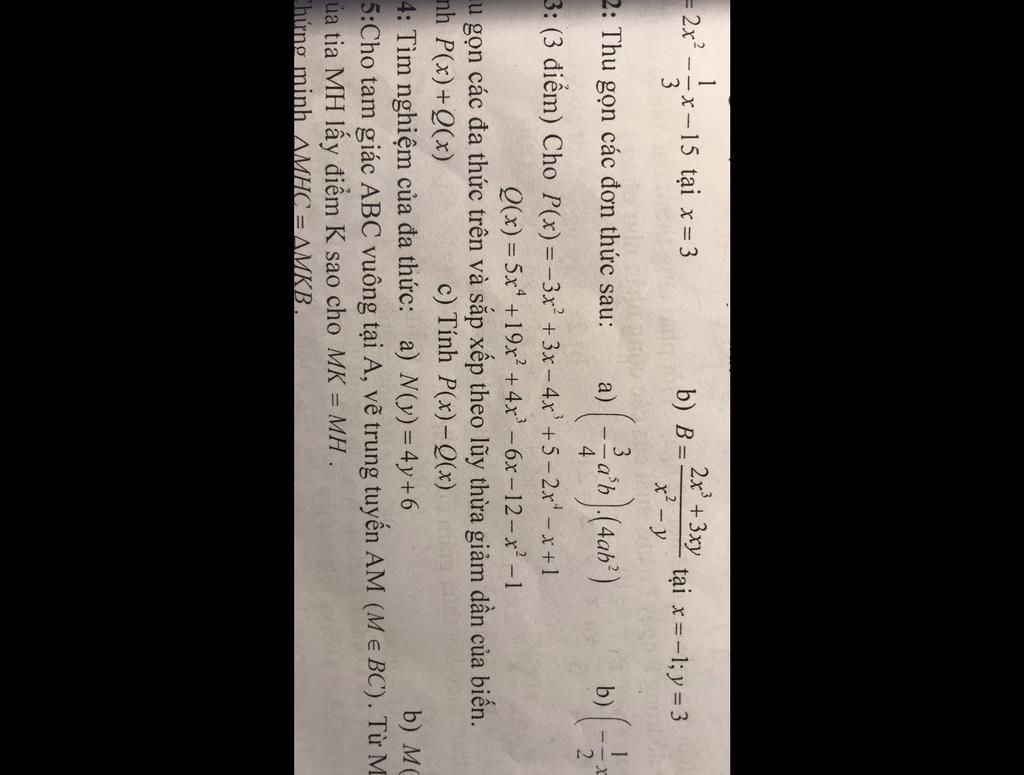 = 2x² − 1/3 x − 15 tại x = 3 b) B = (2x³ + 3xy)/(x² − y) tại x = −1; y = 3
2: Thu gọn các đơn thức sau: a) (−3/4 a⁵b).(4ab²) b) (−1/2 x
3: (3 điểm) Cho P(x) = −3x² + 3x − 4x³ + 5 − 2x⁴ − x + 1
Q(x) = 5x⁴ + 19x² + 4x³ − 6x − 12 − x² − 1
u gọn các đa thức trên và sắp xếp theo lũy thừa giảm dần của biến.
nh P(x) + Q(x) c) Tính P(x) − Q(x)
4: Tìm nghiệm của đa thức: a) N(y) = 4y + 6 b) M(
5:Cho tam giác ABC vuông tại A, vẽ trung tuyến AM (M ∈ BC). Từ M
ủa tia MH lấy điểm K sao cho MK = MH .
Chứng minh ΔMHC = ΔMKB.